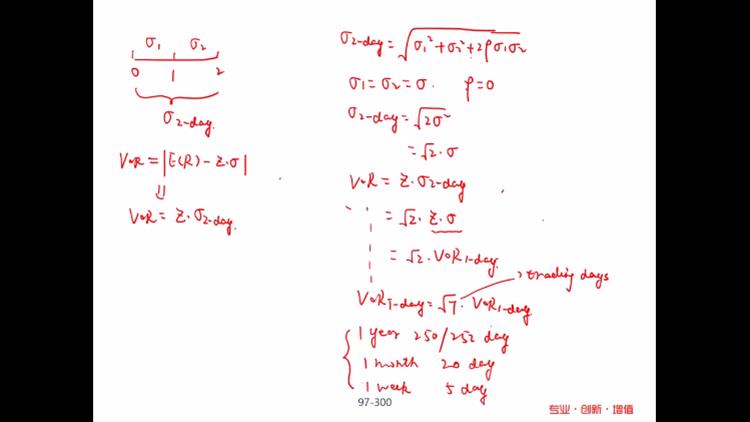 σ₁ σ₂
0 1 2
σ₂₋day
VaR = |E(R) - Z·σ|
⇓
VaR = Z·σ₂₋day
σ₂₋day = √(σ₁² + σ₂² + 2ρσ₁σ₂)
σ₁ = σ₂ = σ ρ = 0
σ₂₋day = √(2σ²)
= √2 · σ
VaR = Z·σ₂₋day
= √2 · Z·σ
= √2 · VaR₁₋day
trading days
VaR T-day = √T · VaR₁₋day
1 year 250/252 day
1 month 20 day
1 week 5 day
97-300
专业·创新·增值